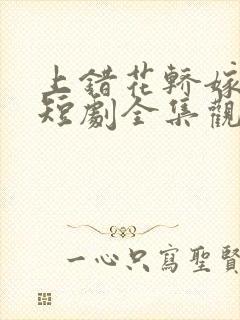 上錯花轎嫁
短劇全集觀
一心只寫聖賢